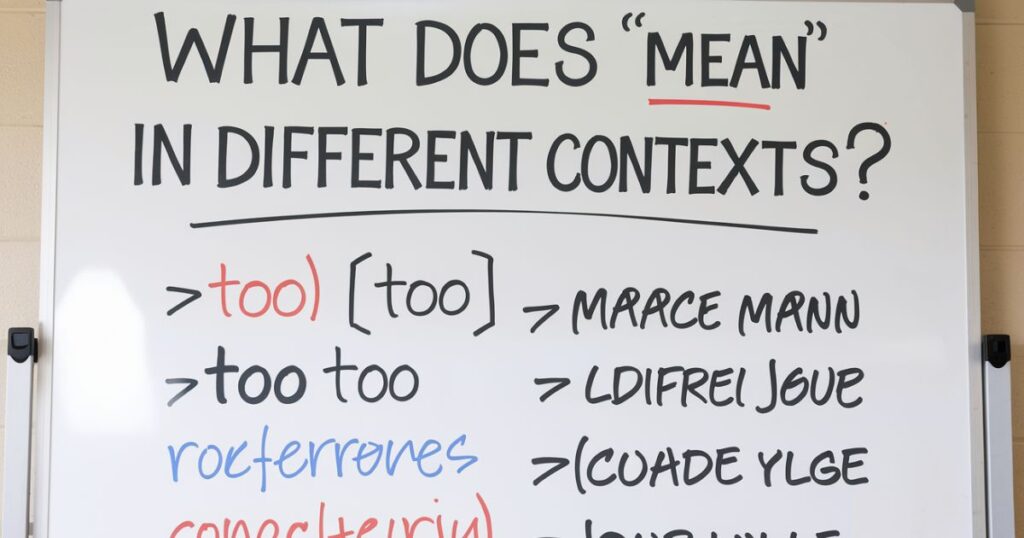 WHAT DOES "MEAN"
IN DIFFERENT CONTEXTS?
>too) [too]
>too too
rocferrones
> MARACE MANN
> LDIFREI JGUE
>(CUADE YLGE